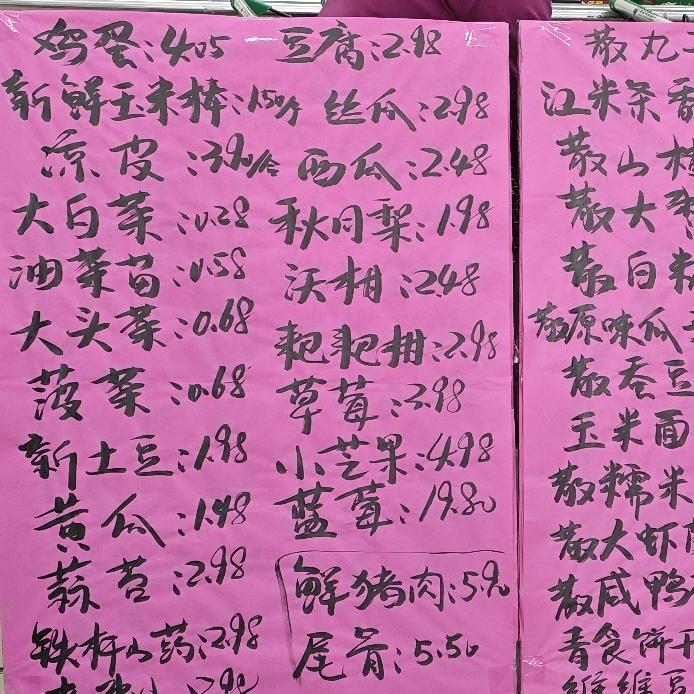 鸡蛋:4.05
新鲜玉米棒:1.50/个
凉皮:3.90/合
大白菜:0.28
油菜苗:0.58
大头菜:0.68
菠菜:0.68
新土豆:1.98
黄瓜:1.48
蒜苔:2.98
铁杆山药:2.98
豆腐:2.98
丝瓜:2.98
西瓜:2.48
秋月梨:1.98
沃柑:2.48
耙耙柑:2.98
草莓:3.98
小芒果:4.98
蓝莓:19.80
鲜猪肉:5.90
尾骨:5.50
散丸
江米条香
散山楂
散大
散白米
散原味瓜
散蚕豆
玉米面
散糯米
散大虾
散咸鸭
青食饼干
维维豆